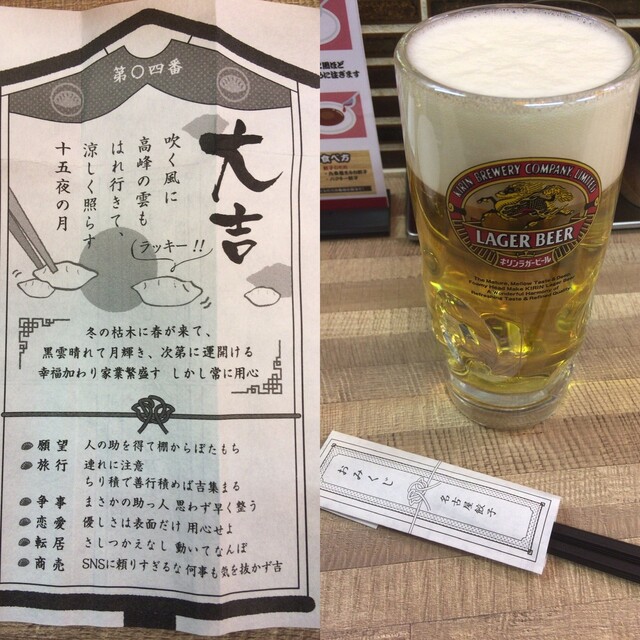 第〇四番
大吉
吹く風に
高峰の雲も
はれ行きて、
涼しく照らす
十五夜の月
ラッキー!!
冬の枯木に春が来て、
黒雲晴れて月輝き、次第に運開ける
幸福加わり家業繁盛す しかし常に用心
願望 人の助を得て棚からぼたもち
旅行 連れに注意
ちり積で善行積めば吉集まる
争事 まさかの助っ人 思わず早く整う
恋愛 優しさは表面だけ 用心せよ
転居 さしつかえなし 動いてなんぼ
商売 SNSに頼りすぎるな 何事も気を抜かず吉
に注ぎます
食べ方
KIRIN BREWERY COMPANY, LIMITED
LAGER BEER
キリンラガービール
The Mature, Mellow Taste & Deep,
おみくじ
名古屋餃子